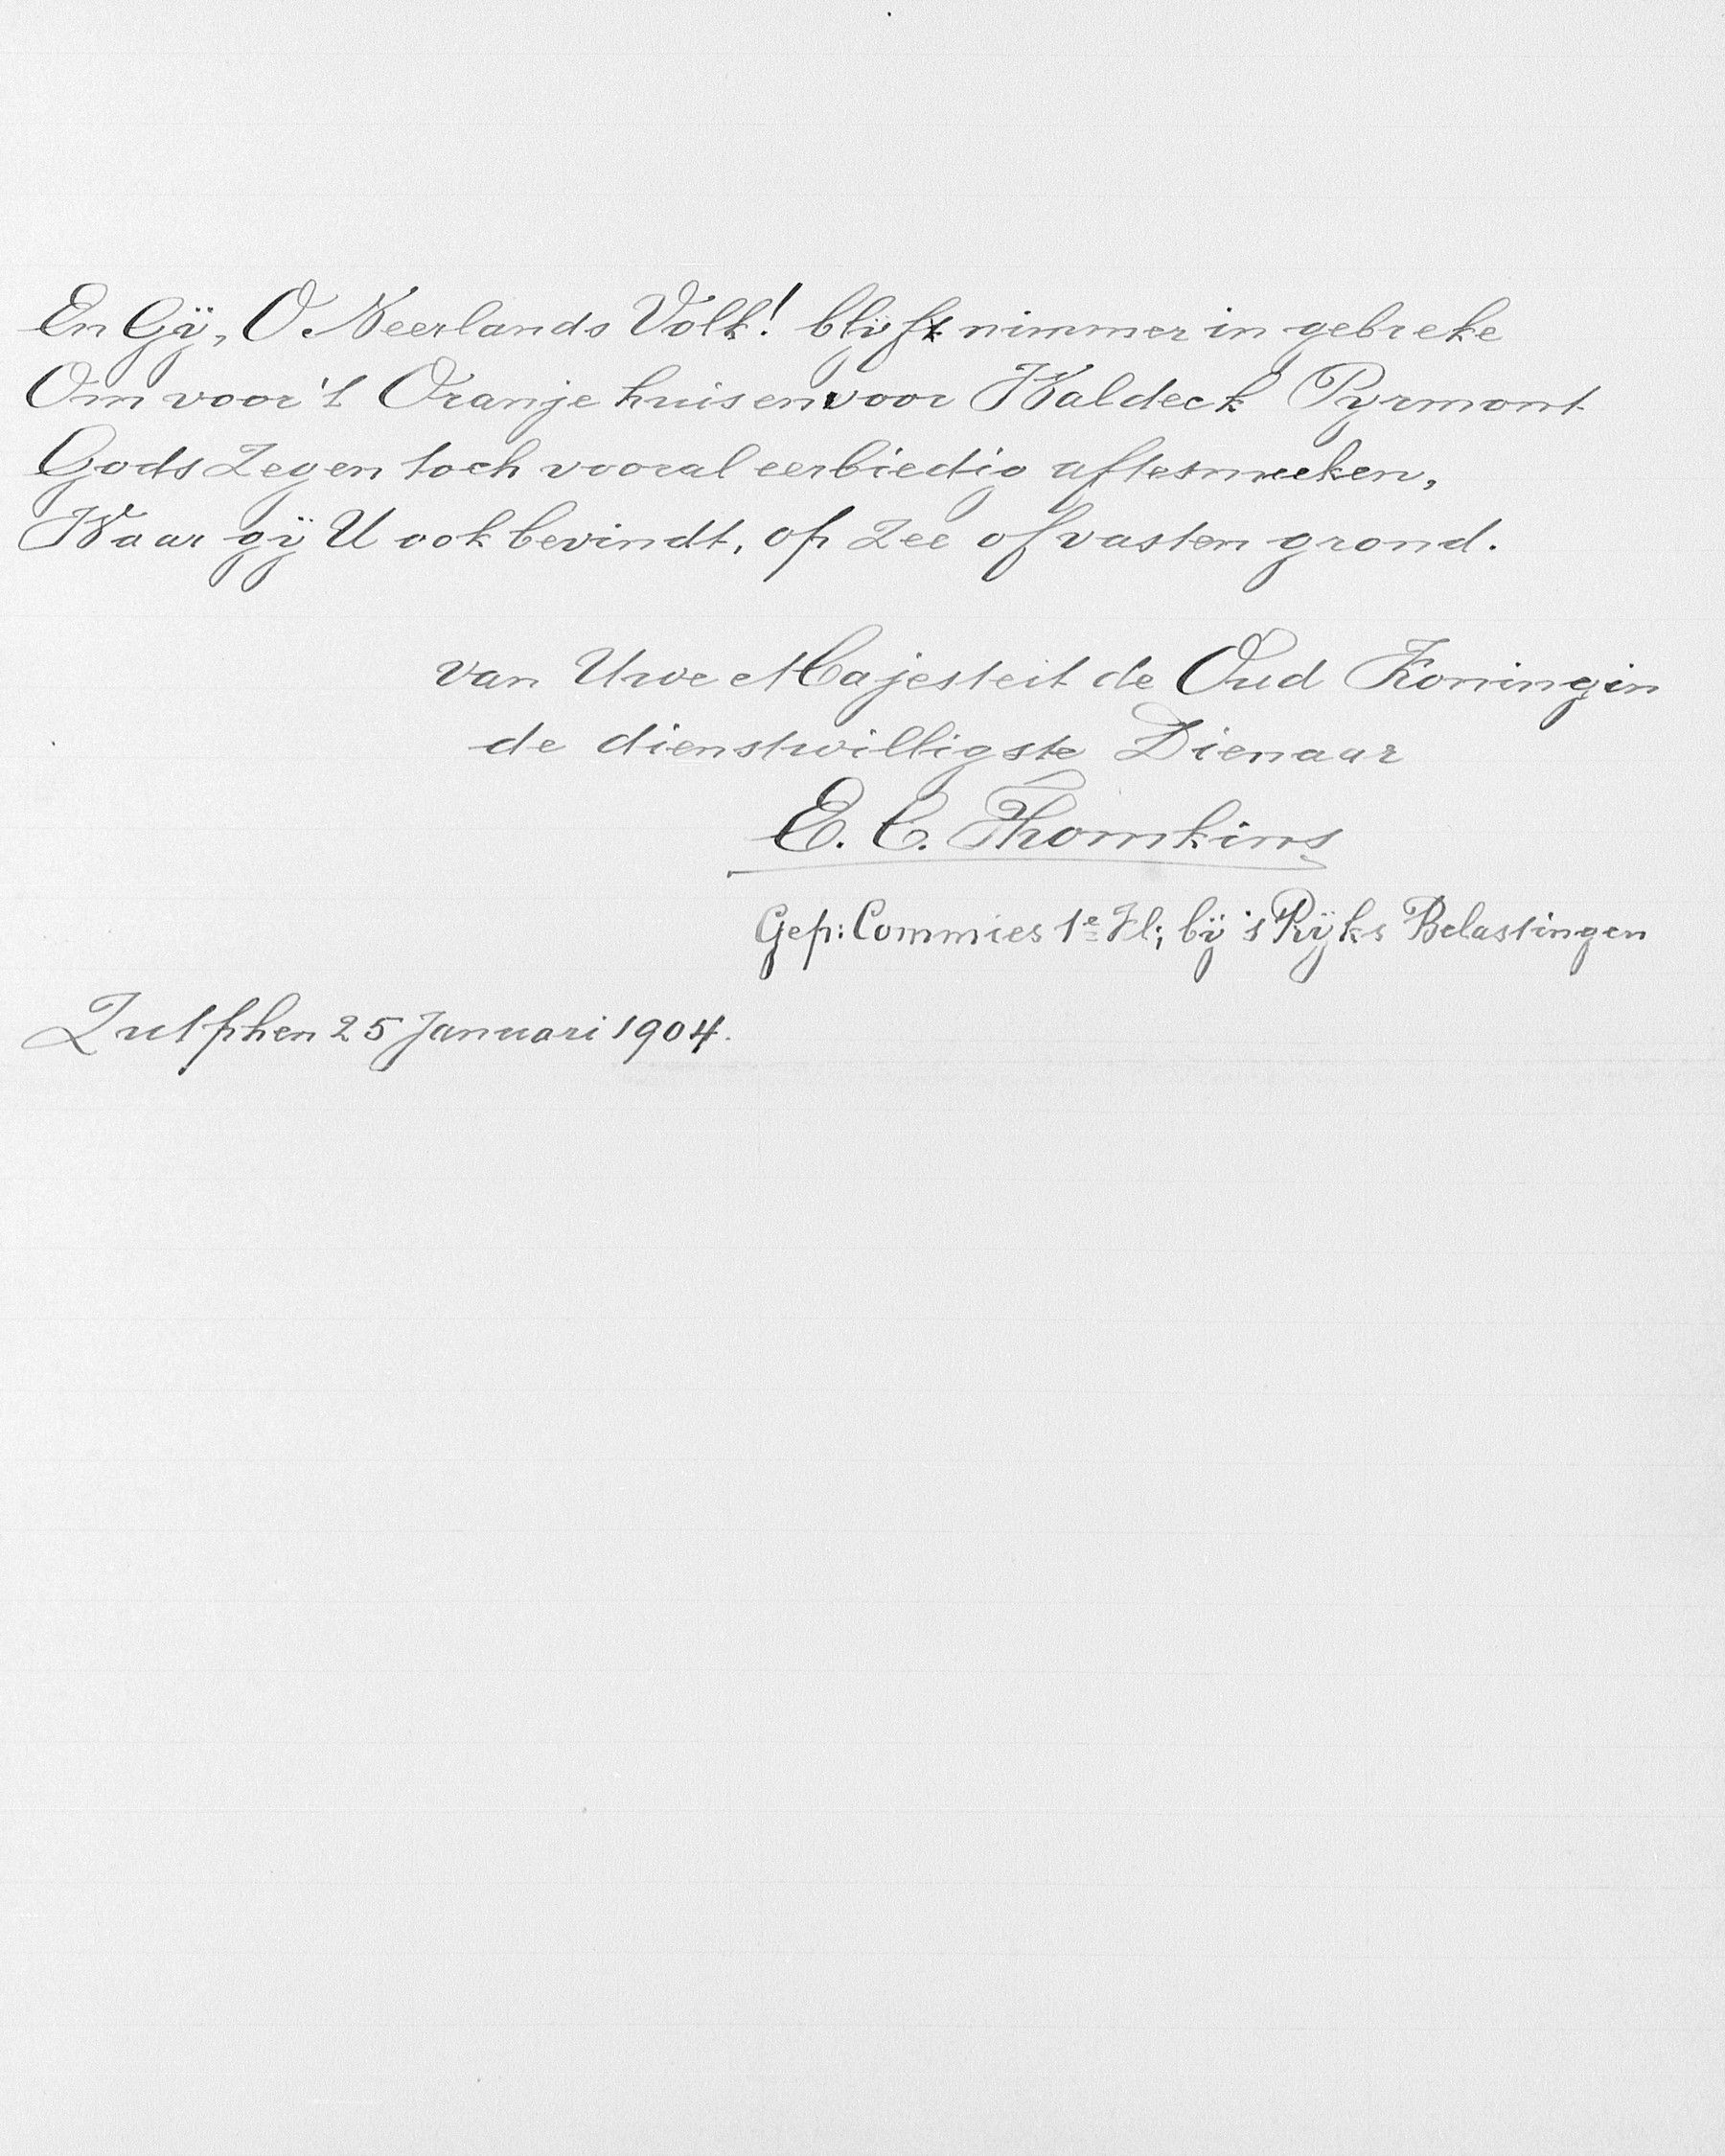 En Gÿ, O Neerlands Volk! blÿft nimmer in gebreke
Om voor 't Oranje huis en voor Waldeck Pyrmont
Gods Zegen toch vooral eerbiedig aftesmeeken,
Waar gÿ U ook bevindt, op Zee of vasten grond.
van Uwe Majesteit de Oud Koningin
de dienstwilligste Dienaar
E. C. Thomkins
Gep: Commies 1e Kl; bÿ 's Rÿks Belastingen
Zutphen 25 Januari 1904.